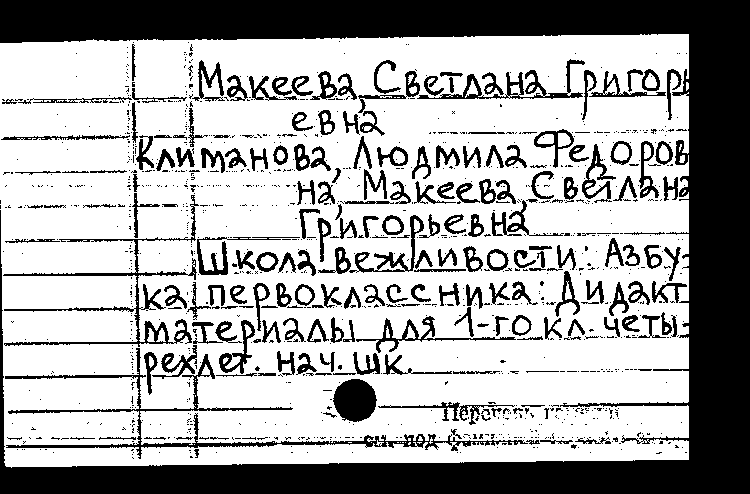 Макеева, Светлана Григорь
евна
Климанова, Людмила Федоров
на, Макеева, Светлана
Григорьевна
Школа вежливости: Азбу-
ка первоклассника: Дидакт
материалы для 1-го кл. четы-
рехлет. нач. шк.
см. под